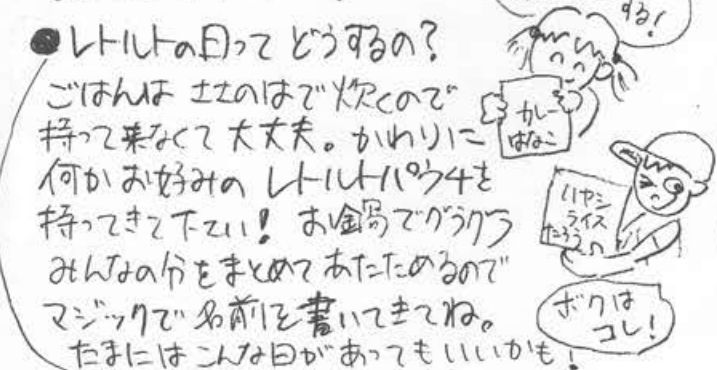 する!
●レトルトの日って どうするの?
ごはんは ささのはで炊くので
持って来なくて大丈夫。かわりに
何かお好みの レトルトパウチを
持ってきて下さい! お鍋でグラグラ
みんなの分をまとめて あたためるので
マジックで名前を書いてきてね。
たまには こんな日が あっても いいかも!
カレー
はなこ
ハヤシ
ライス
たろう
ボクは
コレ!